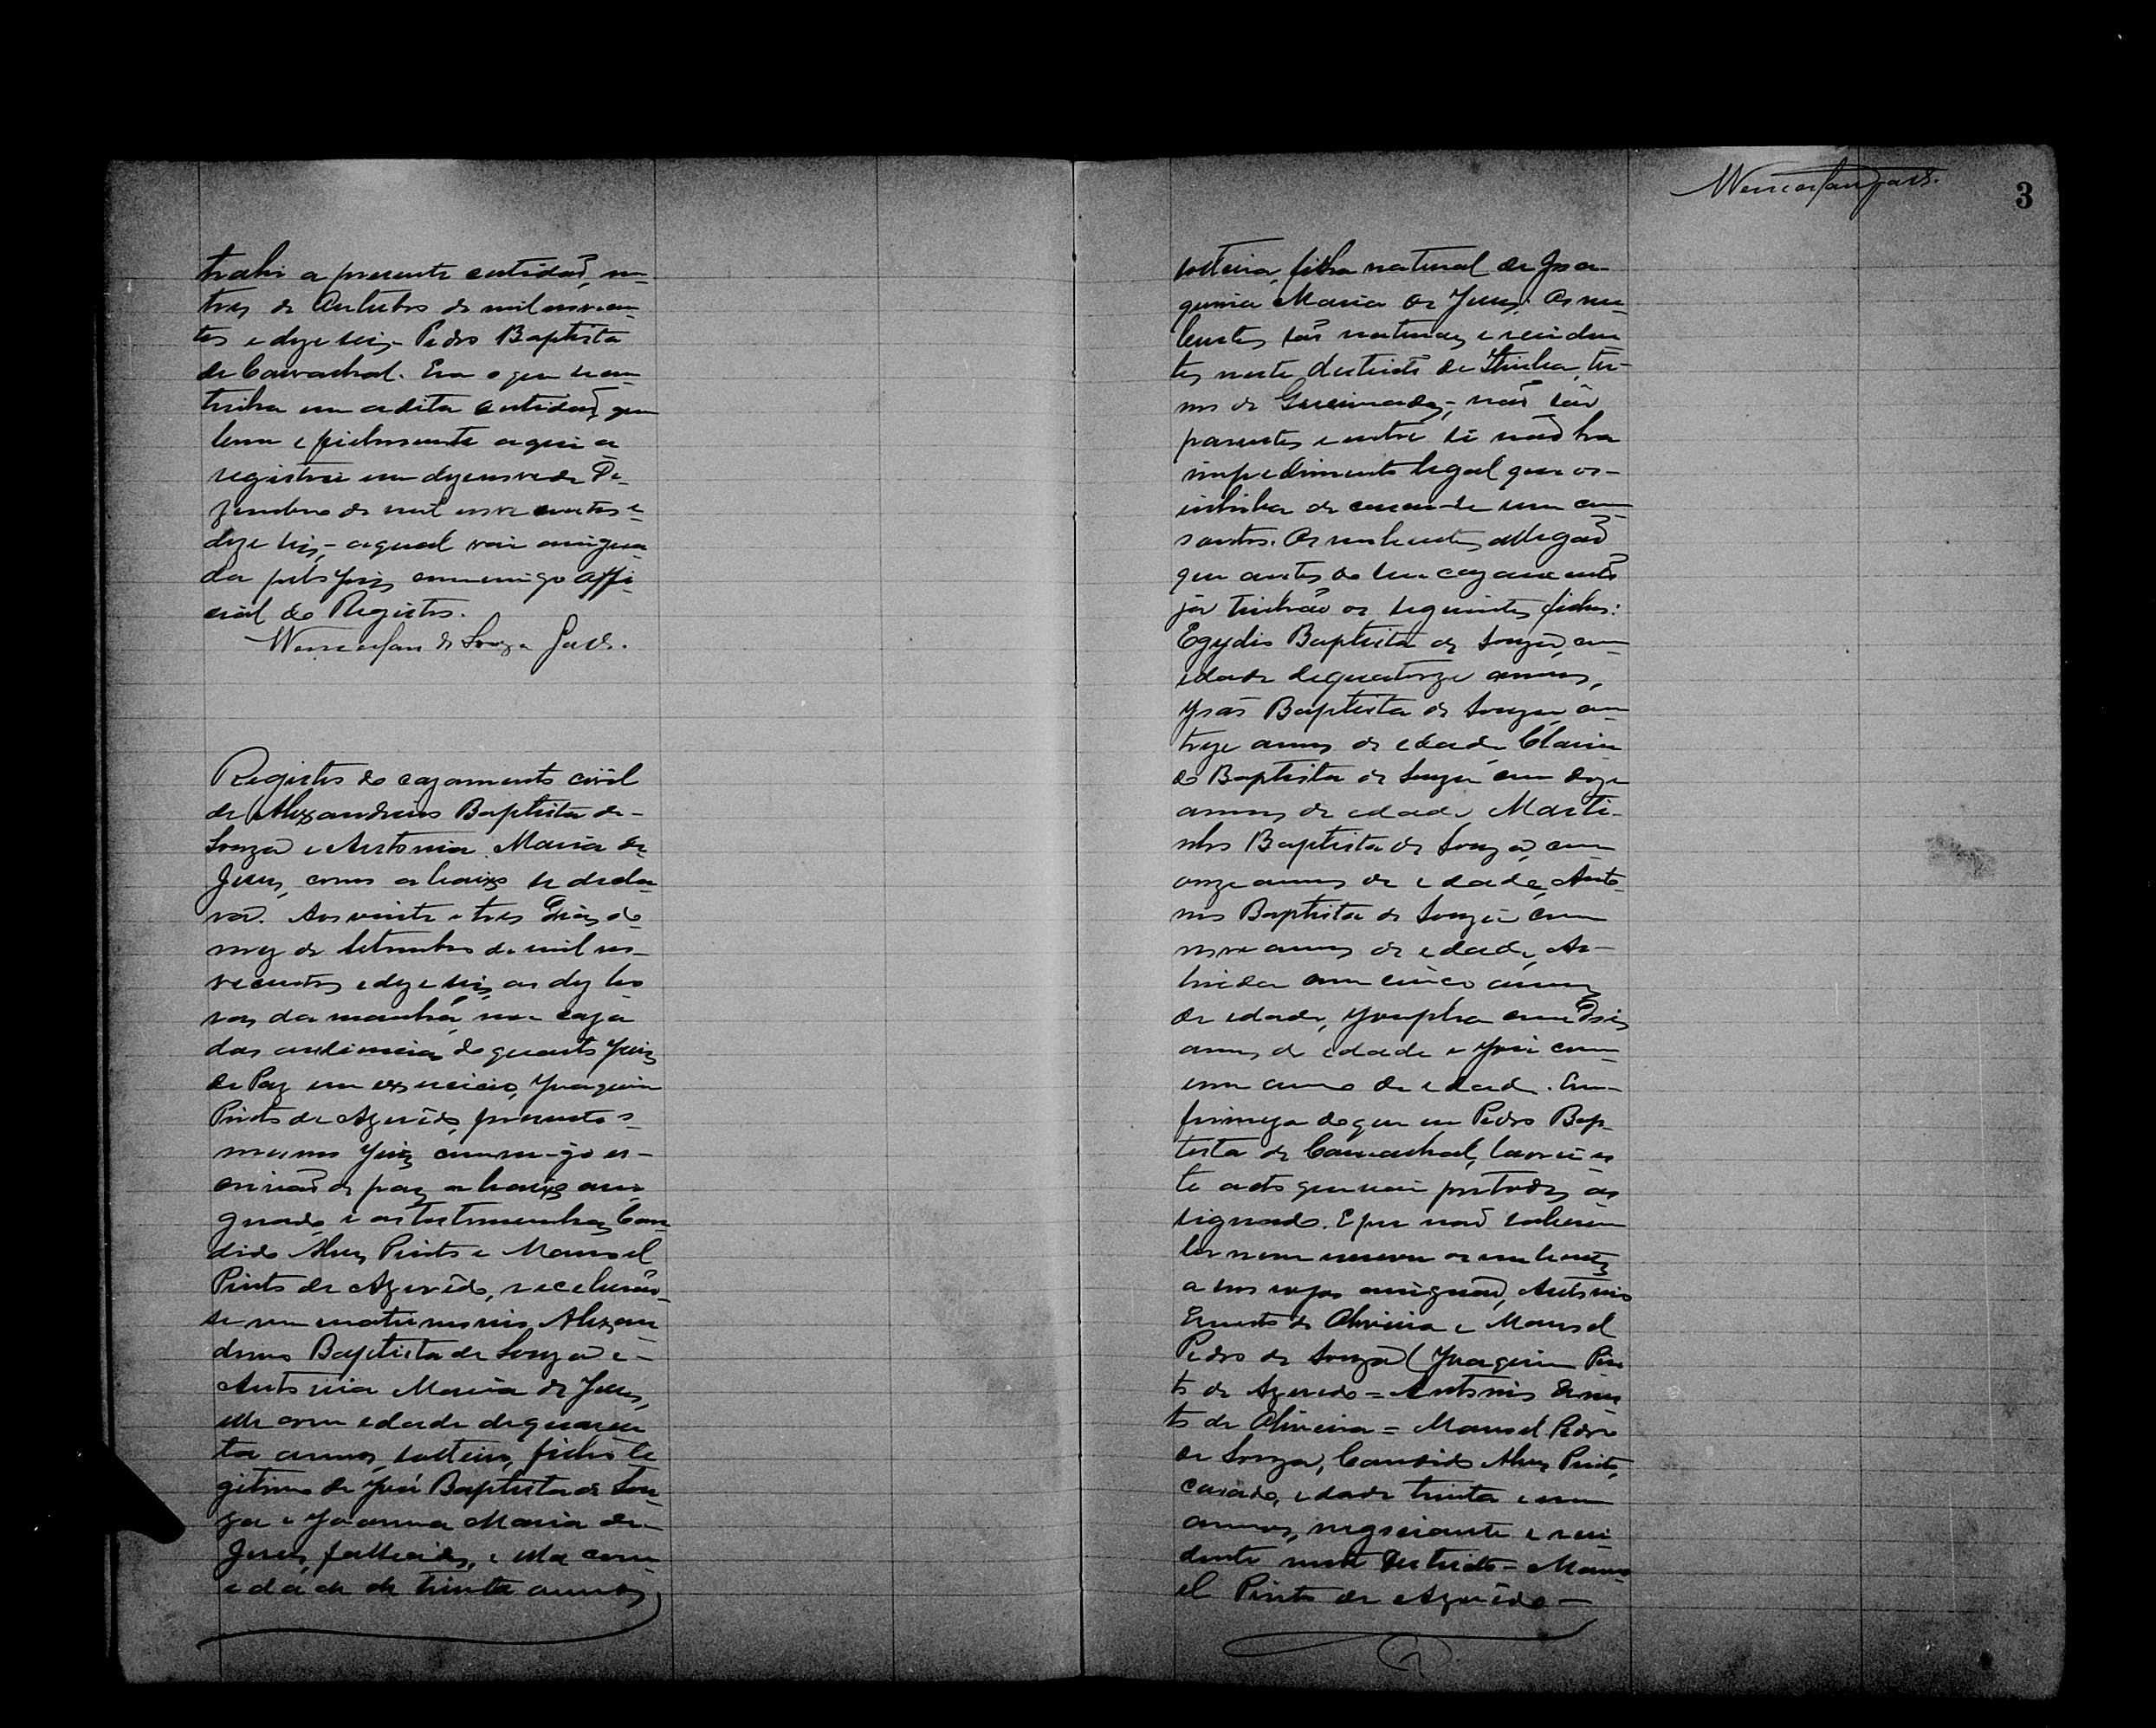 trahi a presente certidão, em
tres de Outubro de mil novecen-
tos e dezeseis. Pedro Baptista
de Carvachal. Era o que se con-
tinha em a dita certidão, que
bem e fielmente aqui a
registrei em dezenove de De-
zembro de mil nove centos e
dezeseis, a qual vai assigna-
da pelo Juiz commigo Offi-
cial do Registro.
de Souza
Registro do cazamento civil
de Alexandrino Baptista de
Souza e Antonia Maria de
Jesus, como abaixo se decla-
ra. Aos vinte e tres Dias do
mez de Setembro de mil no-
vecentos e dezeseis, as dez ho-
ras da manhã, na caza
das audiencias do quarto Juiz
de Paz em exercicio, Joaquim
Pinto de Azevêdo, presente o
mesmo Juiz commigo es-
crivão de paz abaixo assi-
gnado e as testemunhas Can-
dido Alves Pinto e Manoel
Pinto de Azevêdo, receberão-
se em matrimonio Alexan-
drino Baptista de Souza e
Antonia Maria de Jesus,
elle com edade de quaren-
ta annos, solteiro, filho le-
gitimo de José Baptista de Sou-
za e Joanna Maria de
Jesus, fallecidos, e ella com
edade de trinta annos,
3
solteira, filha natural de Joa-
quina Maria de Jesus. Os nu-
bentes são naturaes e residen-
tes neste districto de Itiuba, ter-
mo de Queimadas, não são
parentes e entre si não ha
impedimento legal que os
inhiba de casar-se um com
o outro. Os nubentes allegão
que antes do seu cazamento
já tinhão os seguintes filhos:
Egydio Baptista de Souza, com
edade de quatorze annos,
João Baptista de Souza, com
treze annos de edade, Clarin-
do Baptista de Souza com doze
annos de edade, Marti-
nho Baptista de Souza, com
onze annos de edade, Anto-
nio Baptista de Souza com
nove annos de edade,
com cinco annos
de edade, Josepha com Dois
annos de edade e José com
um anno de edade. Em
firmeza do que eu Pedro Bap-
tista de Carvachal, lavrei es-
te acto que vai por todos as-
signado. E por não saberem
ler nem escrever os nubentes
a seus rogos assignão, Antonio
Ernesto de Oliveira e Manoel
Pedro de Souza (Joaquim Pin-
to de Azevedo = Antonio Ernes-
to de Oliveira = Manoel Pedro
de Souza, Candido Alves Pinto,
casado, edade trinta e um
annos, negociante e resi-
dente neste Districto = Mano-
el Pinto de Azevêdo =